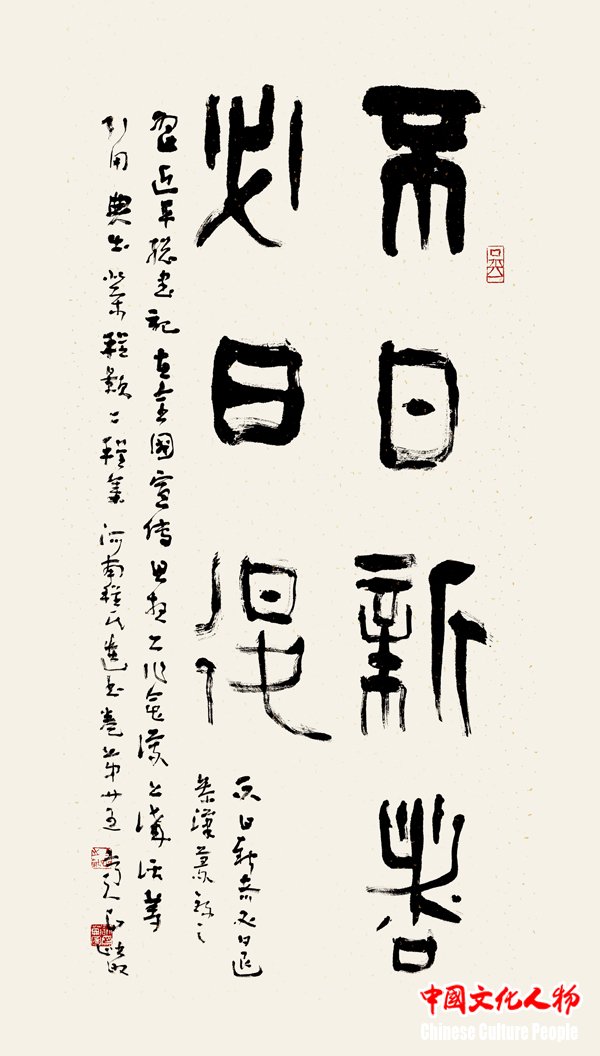 不日新者
必日退
不日新者必日退
秦漢篆
習近平總書記在全國宣傳思想工作會議上講話
引用典出北宋程顥二程集河南程氏遺書卷第廿五
中國文化人物
Chinese Culture People